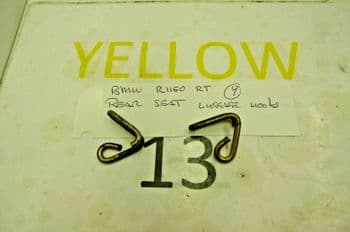 YELLOW
BMW R1150 RT (4)
REAR SEAT LUGGAGE HOOKS
13